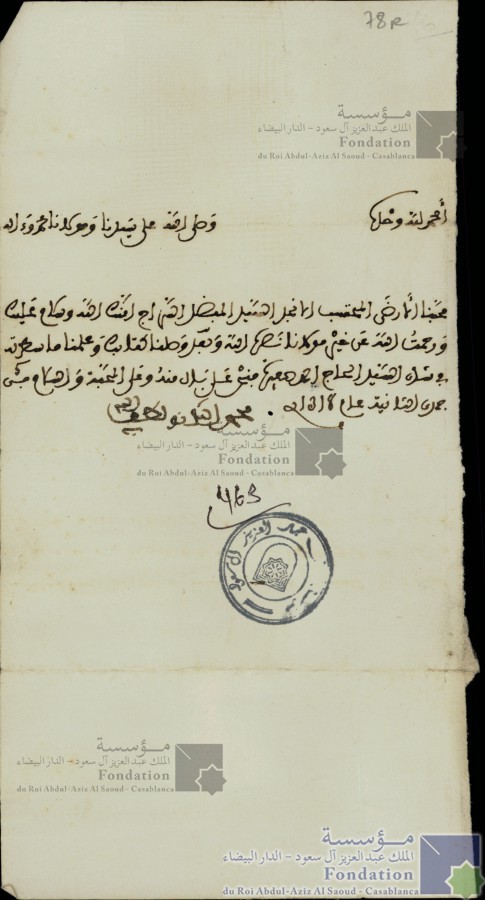 78R
مؤسسة
الملك عبد العزيز آل سعود - الدار البيضاء
Fondation
du Roi Abdul-Aziz Al Saoud - Casablanca
الحمد لله وحده وصلى الله على سيدنا ومولانا محمد وءاله
محبنا الأرضى المحتسب الأنجل السيد المفضل أمنك الله وسلام عليك
ورحمت الله عن خير مولانا نصره الله وبعد وصلنا كتابك وعلمنا ما سطرته
في شأن السيد الحاج منه وعلى المحبة والسلام في
جمدى الثانية عام
مؤسسة
الملك عبد العزيز آل سعود - الدار البيضاء
Fondation
du Roi Abdul-Aziz Al Saoud - Casablanca
463
عبد العزيز آل سعود
مؤسسة
الملك عبد العزيز آل سعود - الدار البيضاء
Fondation
du Roi Abdul-Aziz Al Saoud - Casablanca
مؤسسة
الملك عبد العزيز آل سعود - الدار البيضاء
Fondation
du Roi Abdul-Aziz Al Saoud - Casablanca